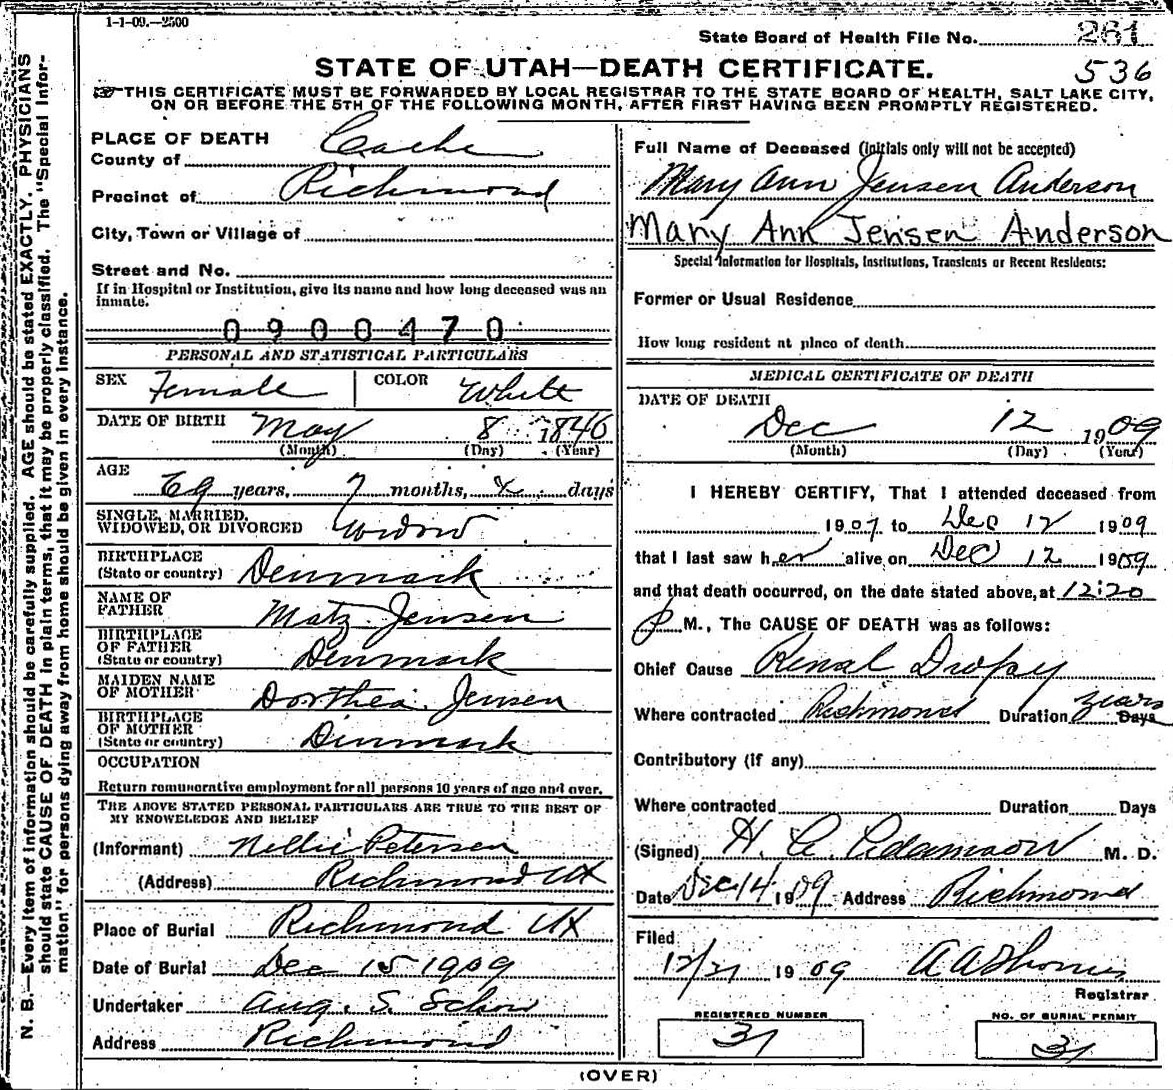 1-1-09.—2500
State Board of Health File No. 261
536
STATE OF UTAH—DEATH CERTIFICATE.
THIS CERTIFICATE MUST BE FORWARDED BY LOCAL REGISTRAR TO THE STATE BOARD OF HEALTH, SALT LAKE CITY,
ON OR BEFORE THE 5TH OF THE FOLLOWING MONTH, AFTER FIRST HAVING BEEN PROMPTLY REGISTERED.
N. B.—Every item of information should be carefully supplied. AGE should be stated EXACTLY. PHYSICIANS
should state CAUSE OF DEATH in plain terms, that it may be properly classified. The "Special Infor-
mation" for persons dying away from home should be given in every instance.
PLACE OF DEATH
County of Cache
Precinct of Richmond
City, Town or Village of
Street and No.
If in Hospital or Institution, give its name and how long deceased was an
inmate.
0900470
PERSONAL AND STATISTICAL PARTICULARS
SEX Female COLOR White
DATE OF BIRTH May 8 1840
(Month) (Day) (Year)
AGE
69 years, 7 months, 4 days
SINGLE, MARRIED,
WIDOWED, OR DIVORCED Widow
BIRTHPLACE
(State or country) Denmark
NAME OF
FATHER Matz Jensen
BIRTHPLACE
OF FATHER
(State or country) Denmark
MAIDEN NAME
OF MOTHER Dorthea Jensen
BIRTHPLACE
OF MOTHER
(State or country) Dinmark
OCCUPATION
Return remunerative employment for all persons 10 years of age and over.
THE ABOVE STATED PERSONAL PARTICULARS ARE TRUE TO THE BEST OF
MY KNOWLEDGE AND BELIEF
(Informant) Nellie Petersen
(Address) Richmond UT
Place of Burial Richmond UT
Date of Burial Dec 15 1909
Undertaker Aug. S. Schow
Address Richmond
Full Name of Deceased (initials only will not be accepted)
Mary Ann Jensen Anderson
Mary Ann Jensen Anderson
Special Information for Hospitals, Institutions, Transients or Recent Residents:
Former or Usual Residence
How long resident at place of death
MEDICAL CERTIFICATE OF DEATH
DATE OF DEATH
Dec 12 1909
(Month) (Day) (Year)
I HEREBY CERTIFY, That I attended deceased from
1907 to Dec 12 1909
that I last saw her alive on Dec 12 1909
and that death occurred, on the date stated above, at 12:20
P M., The CAUSE OF DEATH was as follows:
Chief Cause Renal Dropsy
Where contracted Richmond Duration years Days
Contributory (if any)
Where contracted Duration Days
(Signed) H. C. Adamson M. D.
Date Dec 14 1909 Address Richmond
Filed
12/21 1909 A A Thomas
Registrar
REGISTERED NUMBER
31
NO. OF BURIAL PERMIT
31
(OVER)